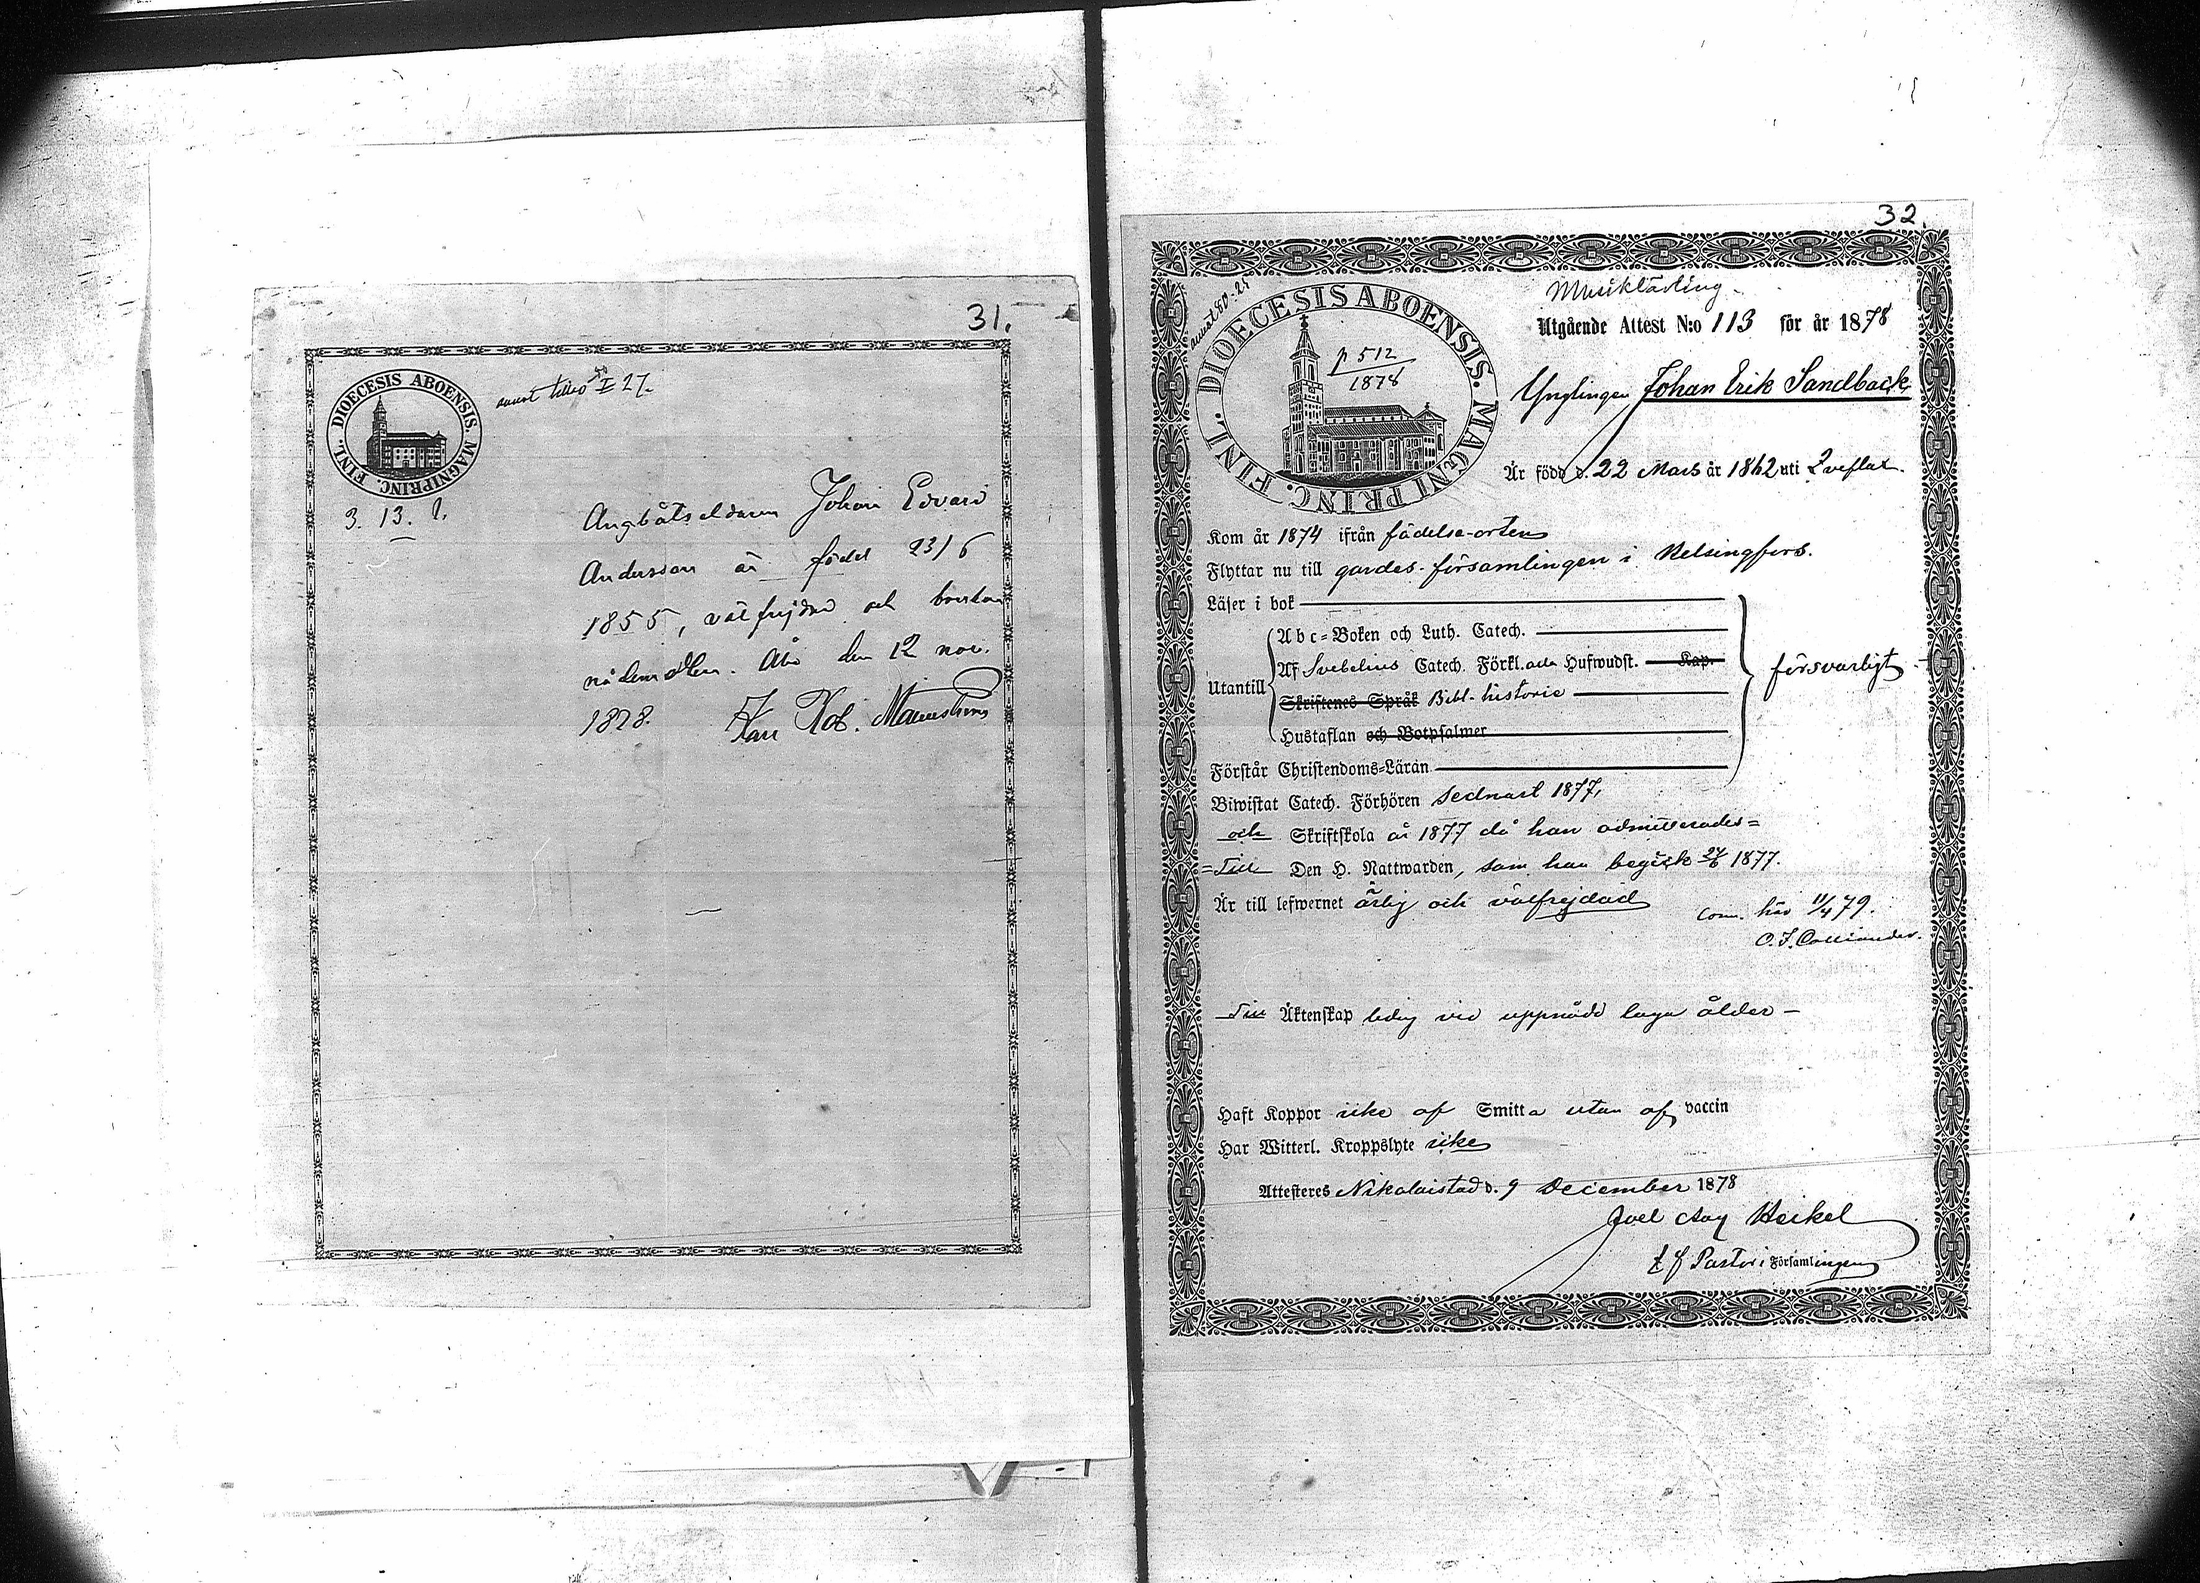 31.
DIOECESIS ABOENSIS. MAGNI PRINC. FINL.
27.
3. 13.
Ångbåtseldaren Johan Edvard
Andersson är född 23/6
1855, välfrejdad och
nådemedlen. Åbo den 12 nov.
1878. Karl Rob. Malmström
32.
DIOECESIS ABOENSIS. MAGNI PRINC. FINL.
p 512
1878
Musiklärling
Utgående Attest N:o 113 för år 1878
Ynglingen Johan Erik Sandback
Är född d. 22 Mars år 1862 uti Qveflax.
Kom år 1874 ifrån födelse-orten
Flyttar nu till gardes-församlingen i Helsingfors.
Läser i bok
Abc-Boken och Luth. Catech.
Af Svebelius Catech. Förkl. och Hufwudst. Kap.
Utantill
Skriftenes Språk Bibl. historie
Hustaflan och Botpsalmer
försvarligt
Förstår Christendoms-Läran
Biwistat Catech. Förhören sednast 1877,
och Skriftskola år 1877 då han admitterades=
=till Den H. Nattwarden, som han begick 24/6 1877.
Är till lefwernet ärlig och välfrejdad
Com. här 11/4 79.
Till Äktenskap ledig vid uppnådd laga ålder –
Haft Koppor icke af Smitta utan af vaccin
Har Witterl. Kroppslyte icke
Attesteres Nikolaistad d. 9 December 1878
Joel Heikel
t f Pastor i Församlingen